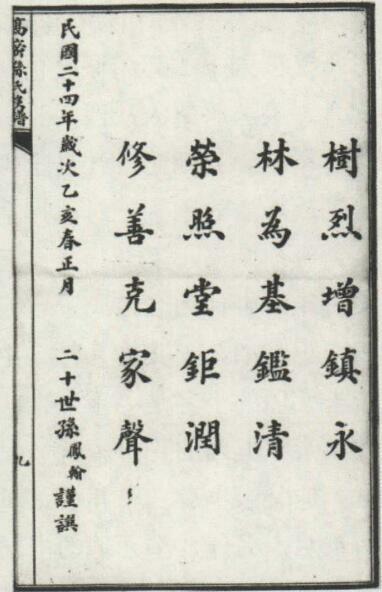 樹烈增鎮永
林為基鑑清
榮煦堂鉅潤
修善克家聲
民國二十四年歲次乙亥春正月 二十世孫鳳翰謹譔
高密孫氏譜
九